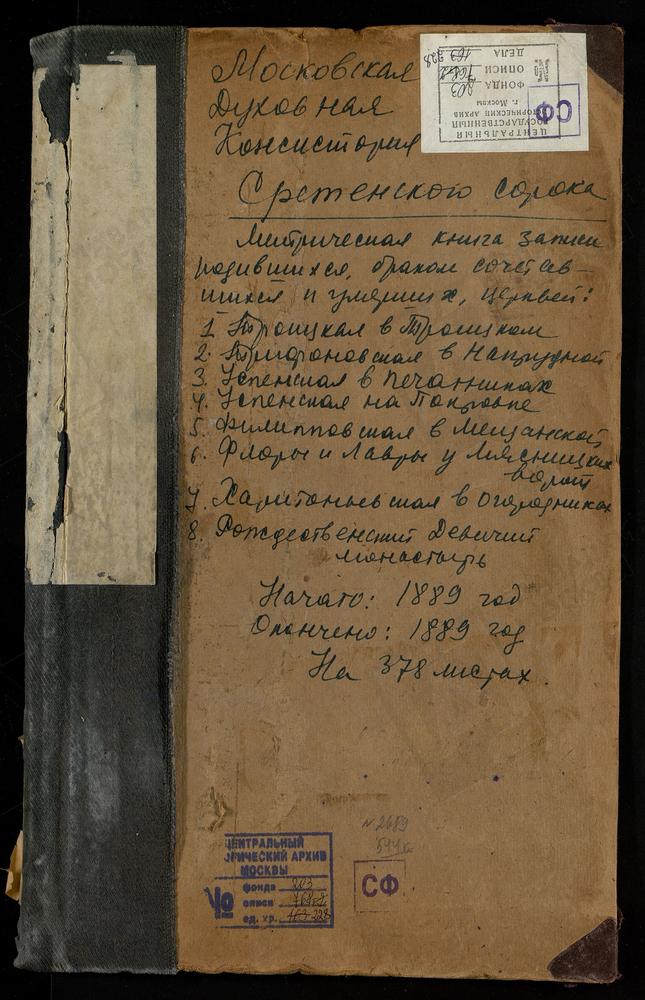 Московская
Духовная
Консистория
ЦЕНТРАЛЬНЫЙ
ГОСУДАРСТВЕННЫЙ
ИСТОРИЧЕСКИЙ АРХИВ
г. Москвы
ФОНДА 203
ОПИСИ
ДЕЛА
СФ
Сретенского сорока
Метрическая книга записи
родившихся, браком сочетав-
шихся и умерших, церквей:
1. Троицкая в Троицком
2. Трифоновская в Напрудной
3. Успенская в Печатниках
4. Успенская на Покровке
5. Филипповская в Мещанской
6. Флоры и Лавры у Мясницких
ворот
7. Харитоньевская в Огородниках
8. Рождественский Девичий
монастырь
Начато: 1889 год
Окончено: 1889 год
На 378 листах.
№2689
ЦЕНТРАЛЬНЫЙ
ОРИЧЕСКИЙ АРХИВ
МОСКВЫ
фонда 203
описи
ед. хр. 228
СФ